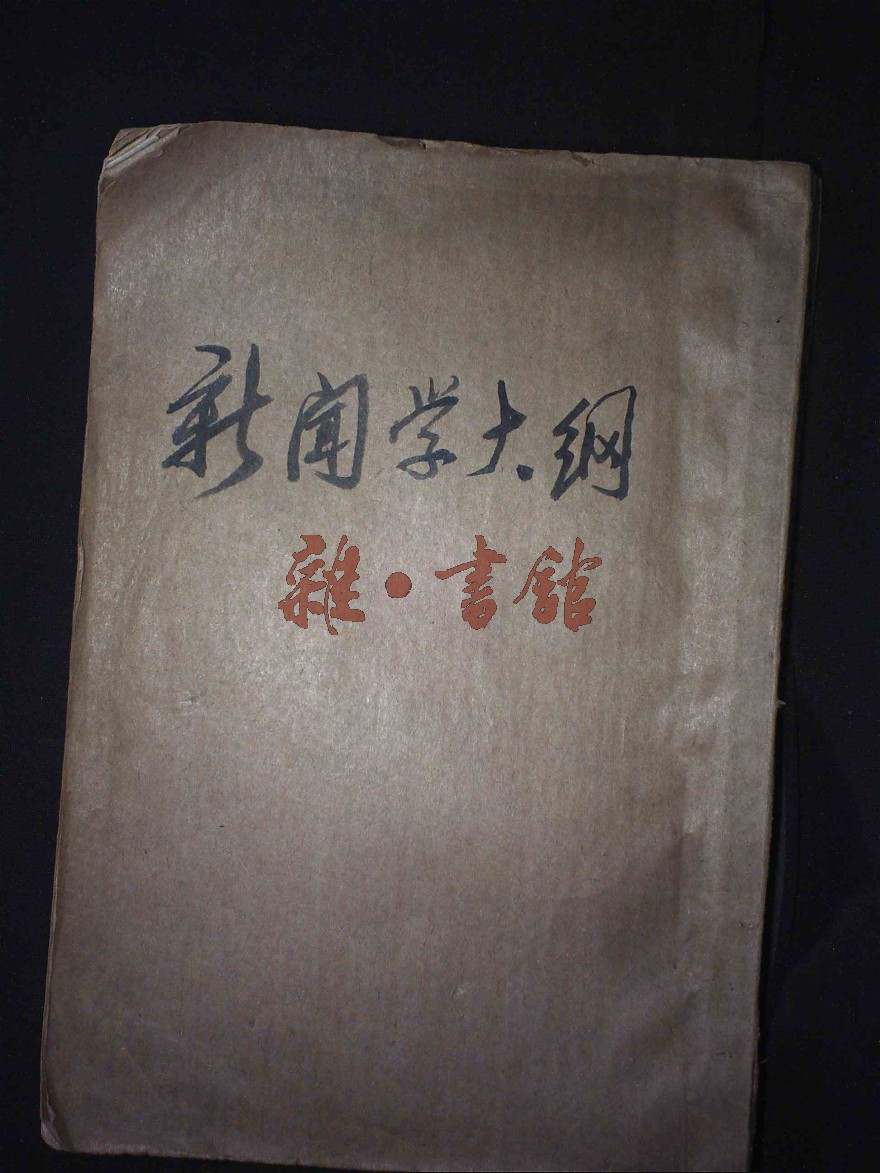 新闻学大纲
雜·書館